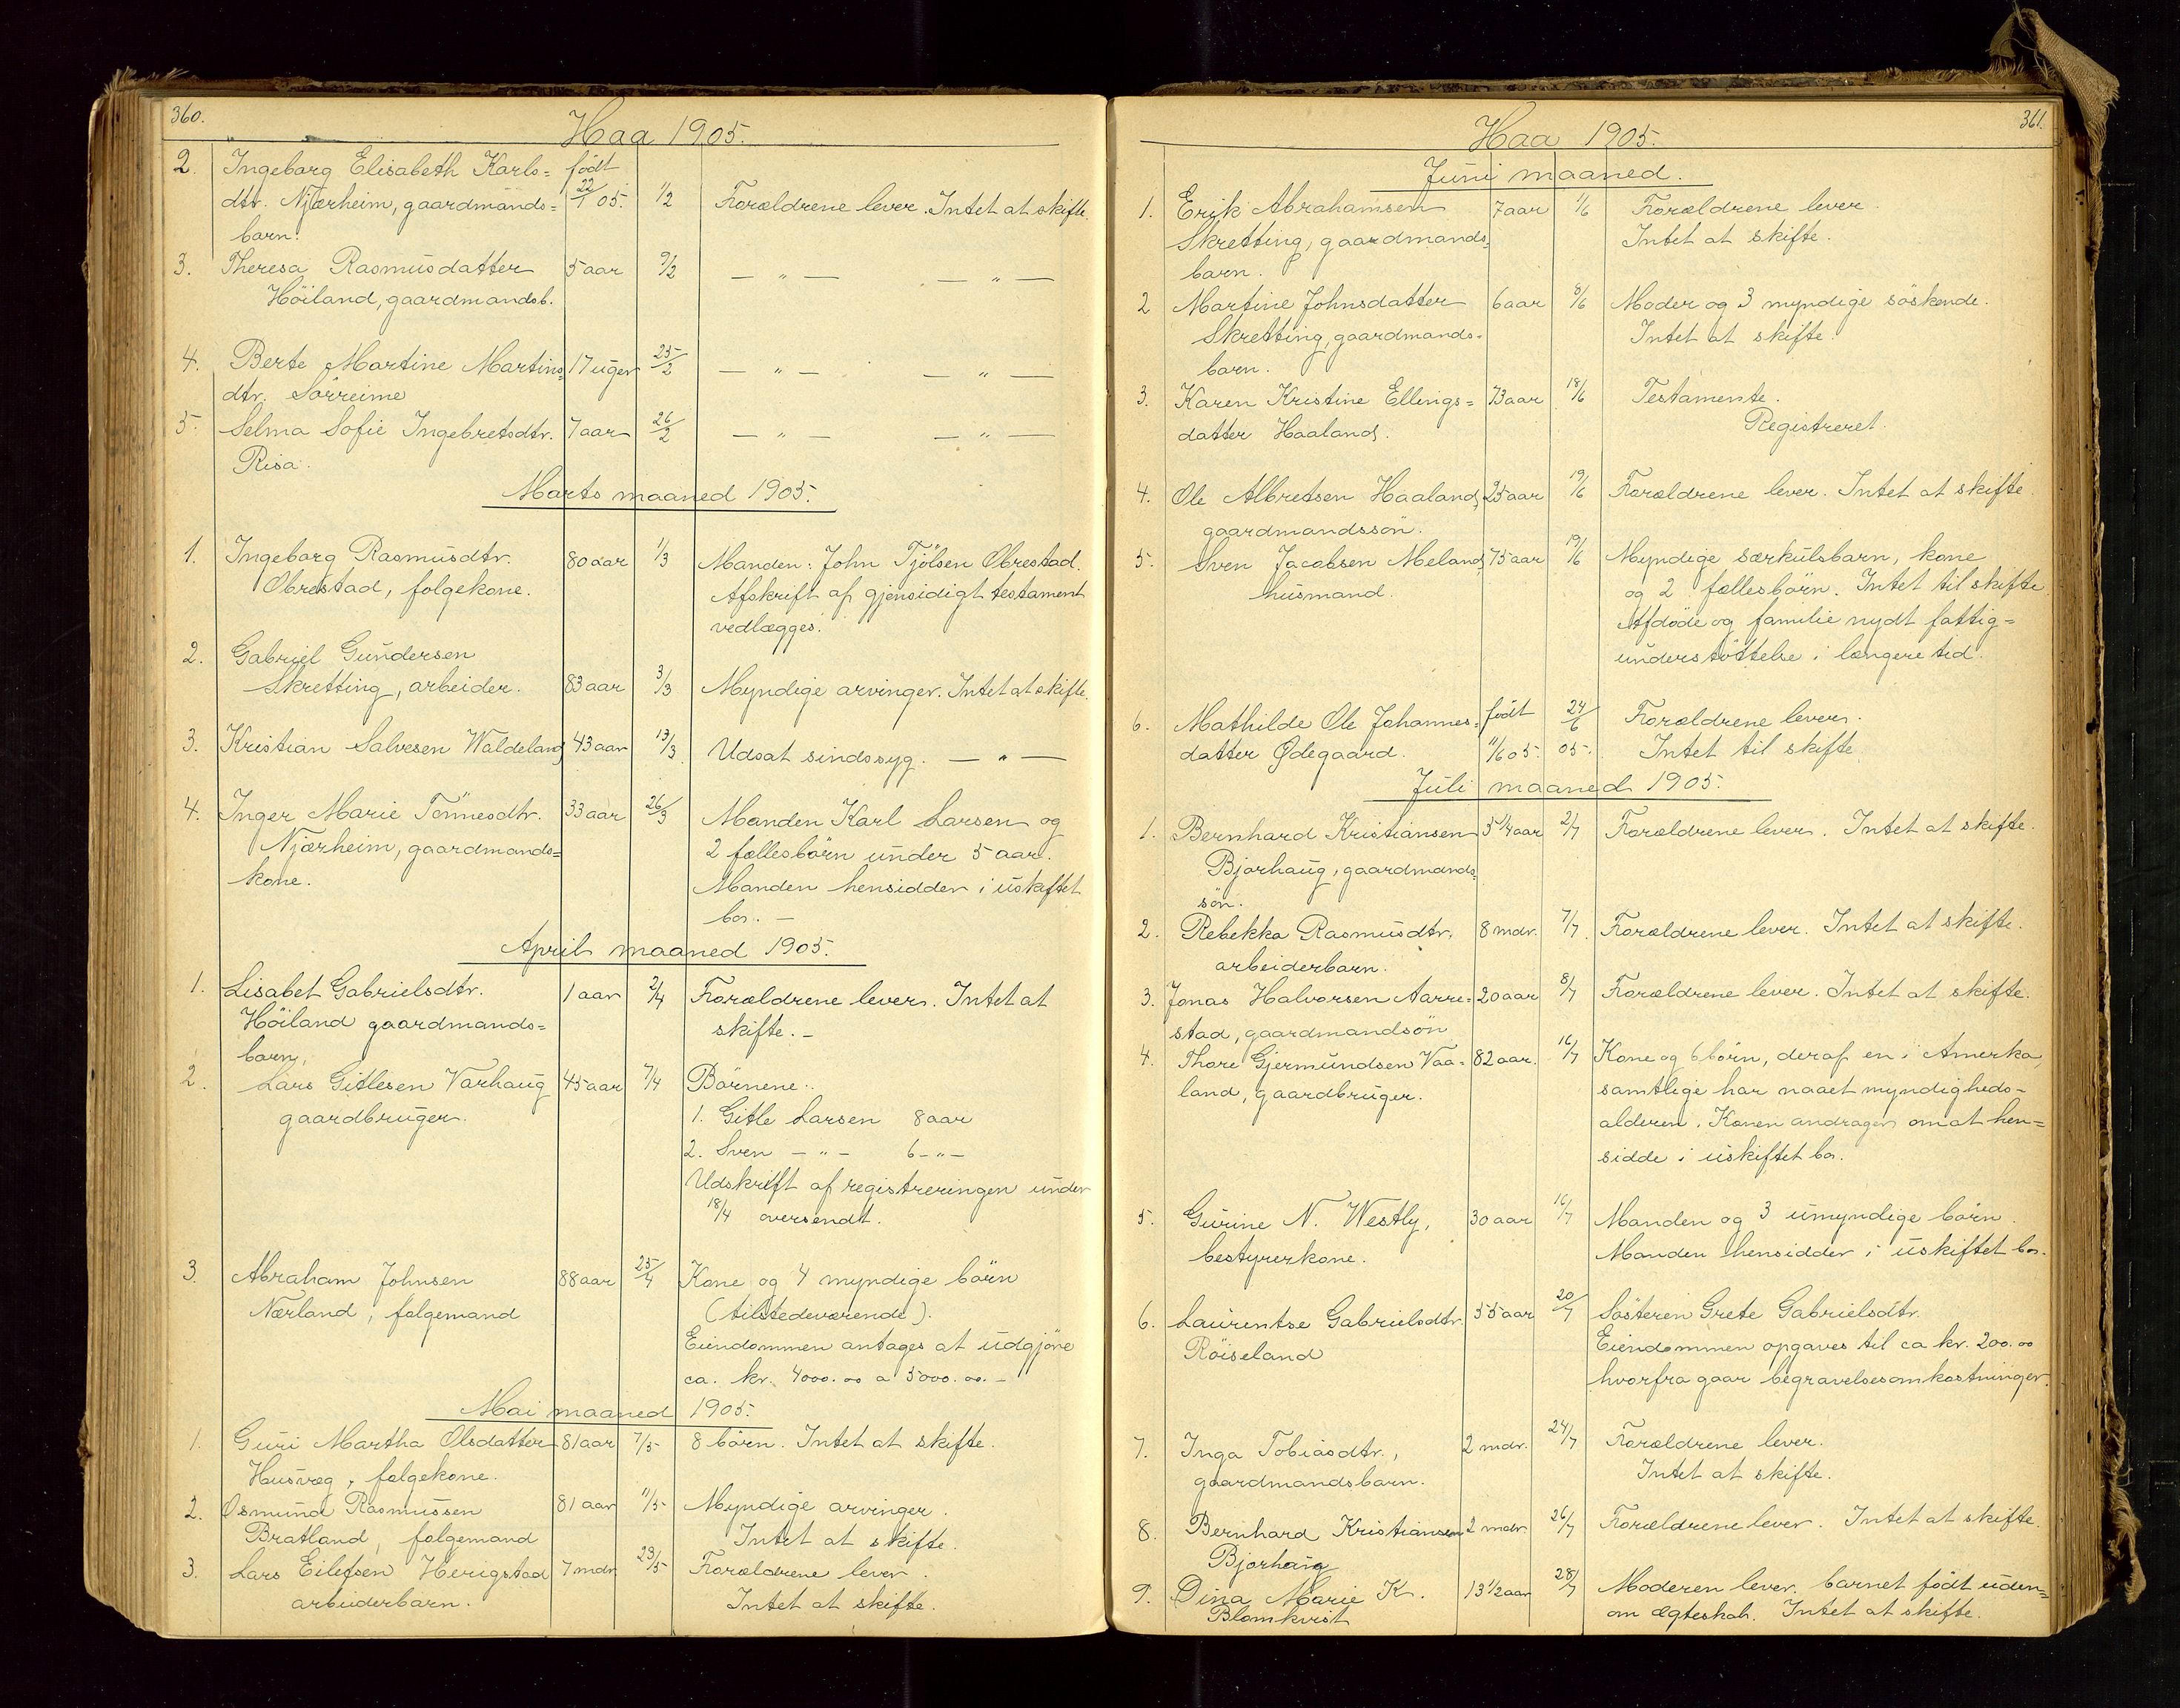 360.
Haa 1905.
2. Ingeborg Elisabeth Karls= født
dtr. Njærheim, gaardmands= 22/1 05. 1/2 Forældrene lever. Intet at skifte.
barn.
3. Theresa Rasmusdatter 5 aar 9/2 — " — — " —
Höiland, gaardmandsb.
4. Berte Martine Martins= 17 uger 25/2 — " — — " —
dtr. Sörreime
5. Selma Sofie Ingebretsdtr. 7 aar 26/2 — " — — " —
Risa.
Marts maaned 1905.
1. Ingeborg Rasmusdtr. 80 aar 1/3 Manden: John Tjölsen Obrestad.
Obrestad, folgekone. Afskrift af gjensidigt testament
vedlægges.
2. Gabriel Gundersen
Skretting, arbeider. 83 aar 3/3 Myndige arvinger. Intet at skifte.
3. Kristian Salvesen Waldeland 43 aar 13/3 Udsat sindssyg. — " —
4. Inger Marie Tönnesdtr. 33 aar 26/3 Manden Karl Larsen og
Njærheim, gaardmands= 2 fællesbörn under 5 aar.
kone. Manden hensidder i uskiftet
bo. —
April maaned 1905.
1. Lisabet Gabrielsdtr. 1 aar 2/4 Forældrene lever. Intet at
Höiland gaardmands= skifte. —
barn,
2. Lars Gitlesen Varhaug 45 aar 7/4 Börnene:
gaardbruger. 1. Gitle Larsen 8 aar
2. Sven — " — 6 — " —
Udskrift af registreringen under
18/4 oversendt.
3. Abraham Johnsen 88 aar 25/4 Kone og 4 myndige börn
Nærland, folgemand (tilstedeværende).
Eiendommen antages at udgjöre
ca. kr. 4000.00 a 5000.00. —
Mai maaned 1905.
1. Guri Martha Olsdatter 81 aar 7/5 8 börn. Intet at skifte.
Husvæg, folgekone.
2. Osmund Rasmussen 81 aar 11/5 Myndige arvinger.
Bratland, folgemand Intet at skifte.
3. Lars Eilefsen Herigstad 7 mdr. 23/5 Forældrene lever.
arbeiderbarn. Intet at skifte.
361.
Haa 1905.
Juni maaned.
1. Erik Abrahamsen 7 aar 1/6 Forældrene lever.
Skretting, gaardmands= Intet at skifte.
barn.
2 Martine Johnsdatter 6 aar 8/6 Moder og 3 myndige söskende.
Skretting, gaardmands= Intet at skifte.
barn.
3. Karen Kristine Ellings= 73 aar 18/6 Testamente.
datter Haaland. Registreret.
4. Ole Albretsen Haaland, 25 aar 19/6 Forældrene lever. Intet at skifte.
gaardmandssön.
5. Sven Jacobsen Meland, 75 aar 19/6 Myndige særkulsbarn, kone
husmand. og 2 fællesbörn. Intet til skifte.
Afdöde og familie nydt fattig=
understöttelse i længere tid.
6. Mathilde Ole Johannes= født 24/6 Forældrene lever.
datter Ødegaard. 11/6 05. 05. Intet til skifte.
Juli maaned 1905.
1. Bernhard Kristiansen 5 1/4 aar 2/7 Forældrene lever. Intet at skifte.
Bjorhaug, gaardmands=
sön.
2. Rebekka Rasmusdtr. 8 mdr. 7/7 Forældrene lever. Intet at skifte.
arbeiderbarn.
3. Jonas Halvorsen Aarre= 20 aar 8/7 Forældrene lever. Intet at skifte.
stad, gaardmandsön
4. Thore Gjermundsen Vaa= 82 aar. 16/7 Kone og 6 börn, deraf en i Amerka,
land, gaardbruger. samtlige har naaet myndigheds=
alderen. Konen andrager om at hen=
sidde i uskiftet bo.
5. Gurine N. Westly, 30 aar 16/7 Manden og 3 umyndige börn.
bestyrerkone. Manden hensidder i uskiftet bo.
6. Laurentse Gabrielsdtr. 55 aar 20/7 Sösteren Grete Gabrielsdtr.
Röiseland Eiendommen opgaves til ca kr. 200.00
hvorfra gaar begravelsesomkostninger.
7. Inga Tobiasdtr., 2 mdr. 24/7 Forældrene lever.
gaardmandsbarn. Intet at skifte.
8. Bernhard Kristiansen 2 mdr. 26/7 Forældrene lever. Intet at skifte.
Bjorhaug
9. Dina Marie K. 13 1/2 aar 28/7 Moderen lever. barnet født uden=
Blomkvist om ægteskab. Intet at skifte.